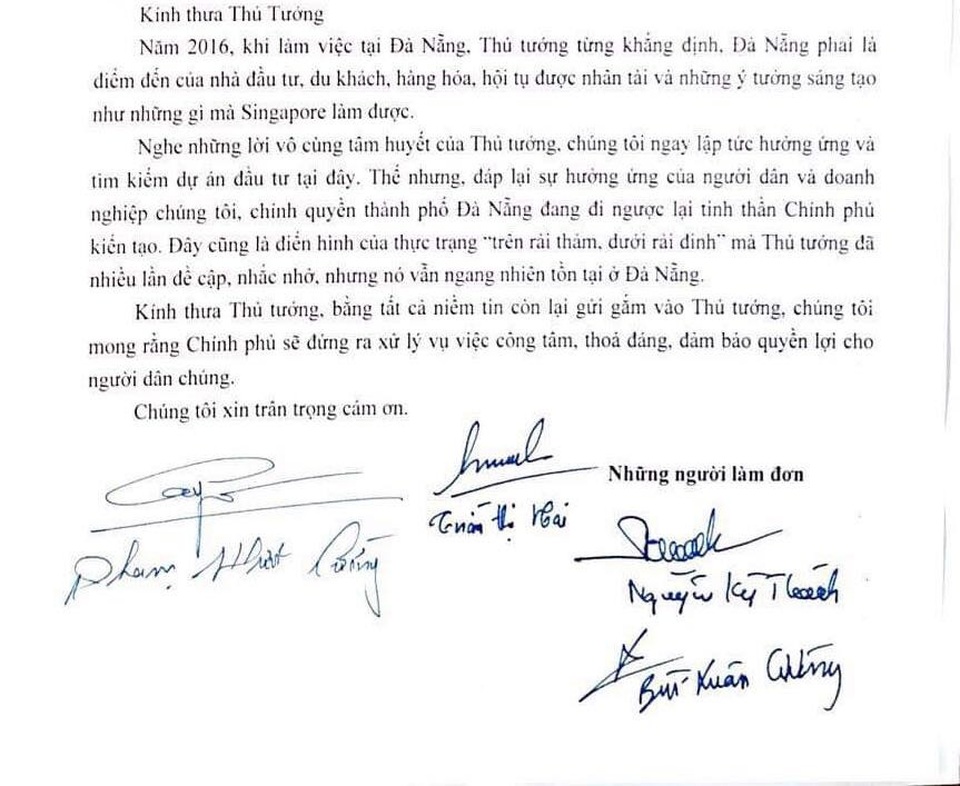 Kính thưa Thủ Tướng
Năm 2016, khi làm việc tại Đà Nẵng, Thủ tướng từng khẳng định, Đà Nẵng phải là
điểm đến của nhà đầu tư, du khách, hàng hóa, hội tụ được nhân tài và những ý tưởng sáng tạo
như những gì mà Singapore làm được.
Nghe những lời vô cùng tâm huyết của Thủ tướng, chúng tôi ngay lập tức hưởng ứng và
tìm kiếm dự án đầu tư tại đây. Thế nhưng, đáp lại sự hưởng ứng của người dân và doanh
nghiệp chúng tôi, chính quyền thành phố Đà Nẵng đang đi ngược lại tinh thần Chính phủ
kiến tạo. Đây cũng là điển hình của thực trạng "trên rải thảm, dưới rải đinh" mà Thủ tướng đã
nhiều lần đề cập, nhắc nhở, nhưng nó vẫn ngang nhiên tồn tại ở Đà Nẵng.
Kính thưa Thủ tướng, bằng tất cả niềm tin còn lại gửi gắm vào Thủ tướng, chúng tôi
mong rằng Chính phủ sẽ đứng ra xử lý vụ việc công tâm, thoả đáng, đảm bảo quyền lợi cho
người dân chúng.
Chúng tôi xin trân trọng cảm ơn.
Những người làm đơn
Trần Thị Hai
Phạm Nhựt
Nguyễn Kỳ Thoách
Bùi Xuân Cường